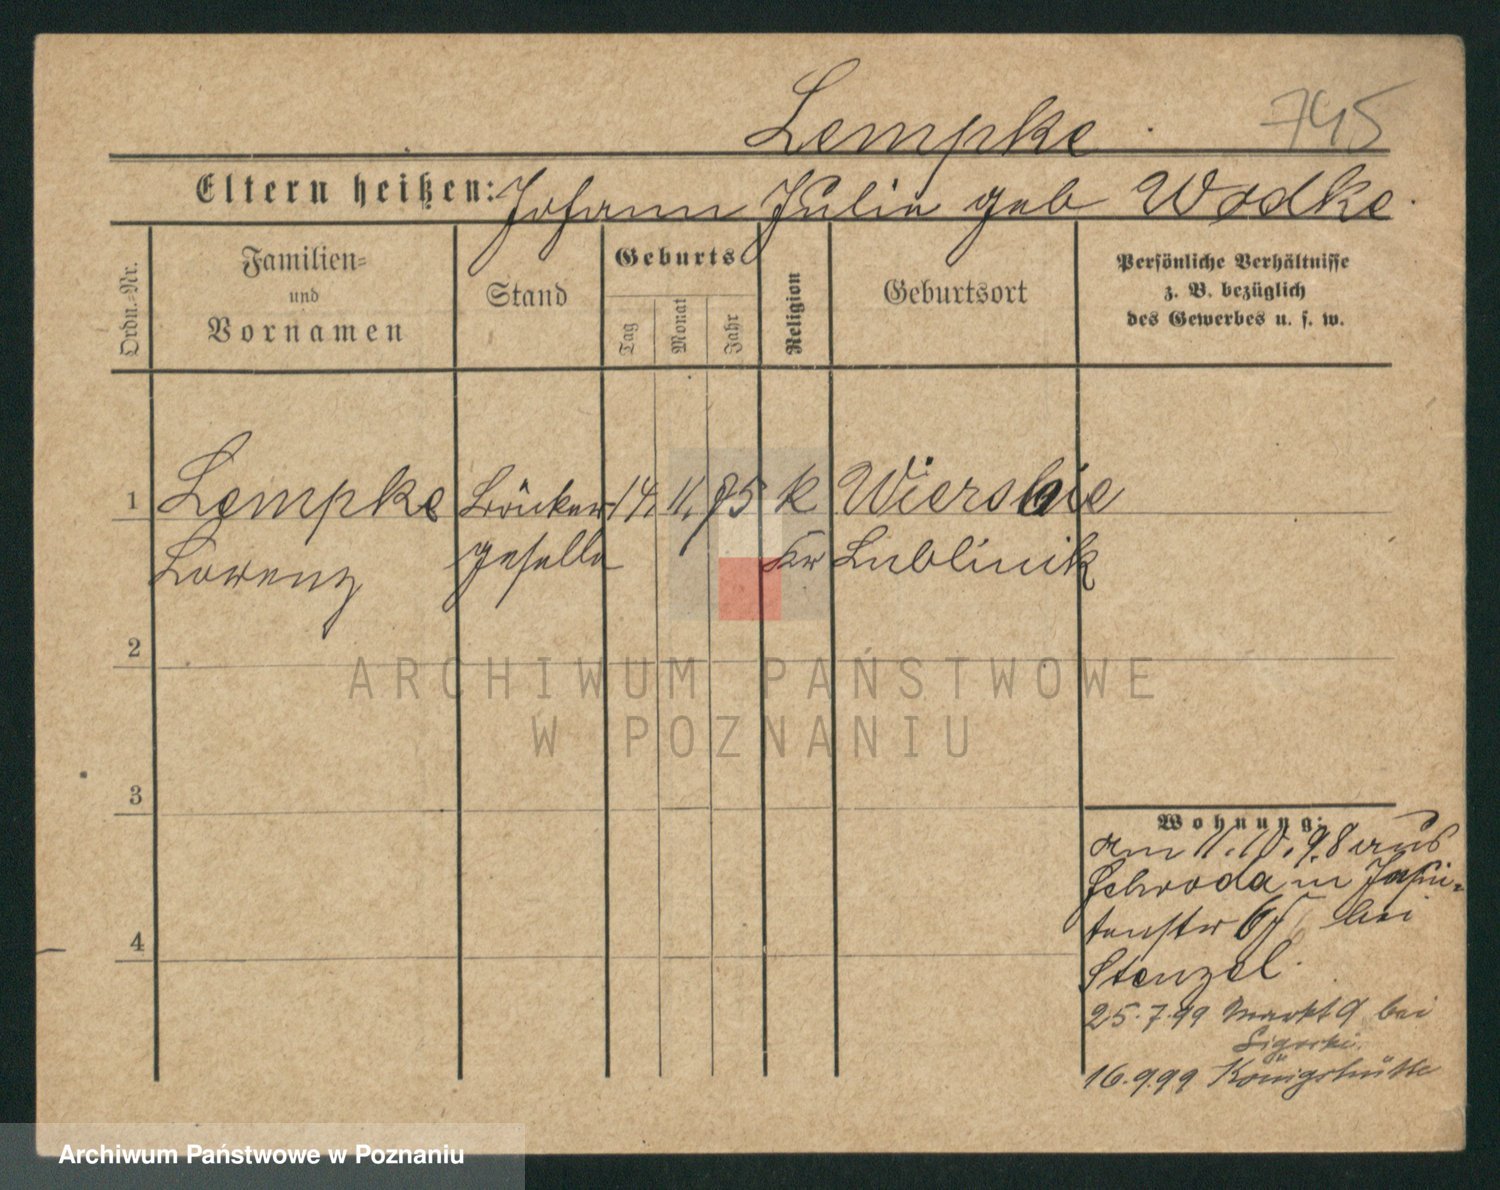 Lempke.
745
Eltern heißen: Johann Julie geb Wodke.
Ordn.-Nr.
Familien-
und
Vornamen
Stand
Geburts
Tag
Monat
Jahr
Religion
Geburtsort
Persönliche Verhältnisse
z. B. bezüglich
des Gewerbes u. s. w.
1 Lempke Bäcker 14. 11. 75 k Wiersbie
Lorenz geselle Kr Lublinik
2
ARCHIWUM PAŃSTWOWE
W POZNANIU
3
4
Wohnung:
am 11.10.98 aus
Schroda in Jesui-
tenstr bei
Stenzel.
25.7.99 Markt 9 bei
16.9.99 Königshütte
Archiwum Państwowe w Poznaniu